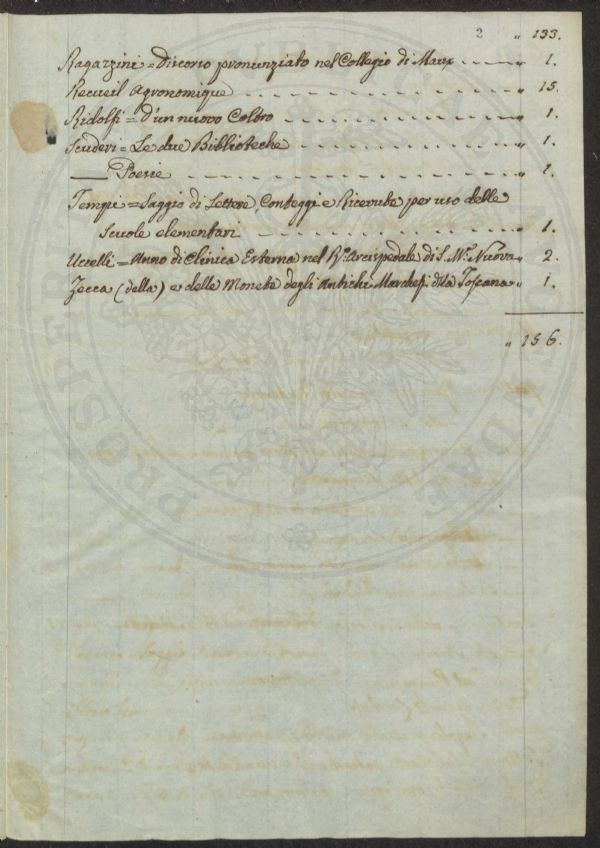 2 „ 133.
Ragazzini = Discorso pronunziato nel Collegio di Maux - - - - „ 1.
Recueil Agronomique - - - - - - - - - - „ 15.
Ridolfi = D'un nuovo Coltro - - - - - - - - „ 1.
Scuderi = Le due Biblioteche - - - - - - - - „ 1.
—— Poesie - - - - - - - - - - - - „ 1.
Tempi = Saggio di Lettere, Conteggi e Ricevute per uso delle
Scuole elementari - - - - - - - - - - „ 1.
Uccelli = Anno di Clinica Esterna nel R.º Arcispedale di S. M.ª Nuova „ 2.
Zecca (della) e delle Monete degli Antichi Marchesi della Toscana „ 1.
„ 156.
PROSPE